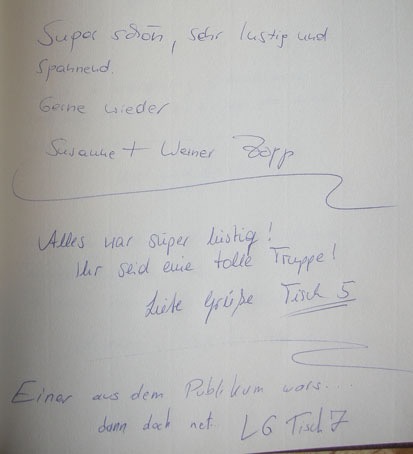 Super schön, sehr lustig und
spannend.
Gerne wieder
Susanne + Werner Zopp
Alles war super lustig!
Ihr seid eine tolle Truppe!
Liebe Grüße Tisch 5
Einer aus dem Publikum wars....
dann doch net... LG Tisch 7